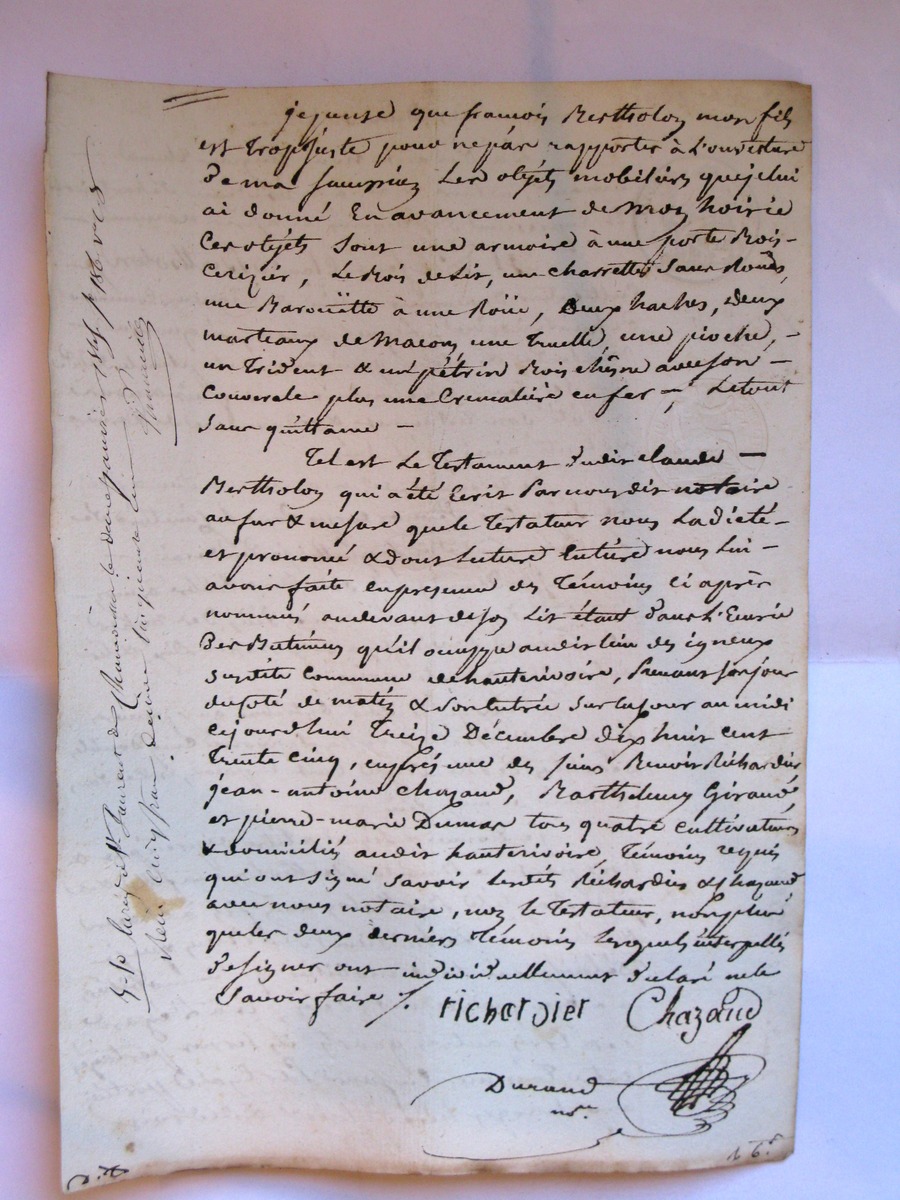 je pense que francois Bertholon mon fils
est trop juste pour ne pas rapporter à L'ouverture
de ma succession Les objets mobiliers que je lui
ai donné En avancement de mon hoirie
Ces objets sont une armoire à une porte Bois-
Cerizier, Le Bois de Lit, une charrette sans Rouës,
une Barouëtte à une Roüe, Deux haches, deux
marteaux de Macon, une Truelle, une pioche, -
un Trident & un pétrin Bois chêne avec son -
Couvercle plus une Cremalière en fer -, Le tout
Sans quittance -
Tel est Le Testament dudit claude -
Bertholon qui a été Ecrit Par nous dit notaire
au fur & mesure que le Testateur nous La dicté -
et prononcé & dont Lecture Entière nous Lui -
avons faite en presence des Témoins Ci après
nommés au devant de son Lit étant dans L'Ecurie
Des Batimens qu'il occuppe audit lieu des
susdite Commune de hauterivoire, Prenant son jour
du coté de matin & son Entrée sur la cour au midi
Cejourd'hui Treize Décembre dix huit cent
Trente Cinq, en présence des sieurs Benoit Richardier
jean-antoine Chazaud, Barthelemy Giraud
et pierre-marie Dumas tous quatre cultivateurs
& domiciliés audit hauterivoire, Témoins requis
qui ont signé savoir lesdits Richardier & Chazaud
avec nous notaire, non le Testateur, non plus
que les deux derniers Témoins lesquels interpellés
de signer ont individuellement déclaré ne le
Savoir faire /.
richardier Chazaud
Durand
nre.
St Laurent de Chamousset le douze janvier 1848. f° 186. v° c 8
Reçu Cinq francs décime Cinquante Centimes